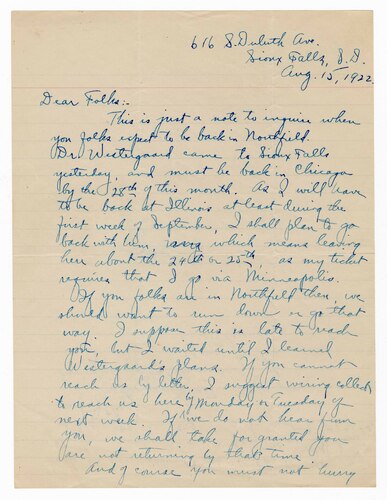 616 S. Duluth Ave.
Sioux Falls, S.D.
Aug. 15, 1922.
Dear Folks:-
This is just a note to inquire when
you folks expect to be back in Northfield.
Dr. Westergaard came to Sioux Falls
yesterday, and must be back in Chicago
by the 28th of this month. As I will have
to be back at Illinois at least during the
first week of September, I shall plan to go
back with him, which means leaving
here about the 24th or 25th as my ticket
requires that I go via Minneapolis.
If you folks are in Northfield then, we
should want to run down or go that
way. I suppose this is late to reach
you, but I waited until I learned
Westergaard's plans. If you cannot
reach us by letter, I suggest wiring collect
to reach us here by Monday or Tuesday of
next week. If we do not hear from
you, we shall take for granted you
are not returning by that time.
And of course you must not hurry